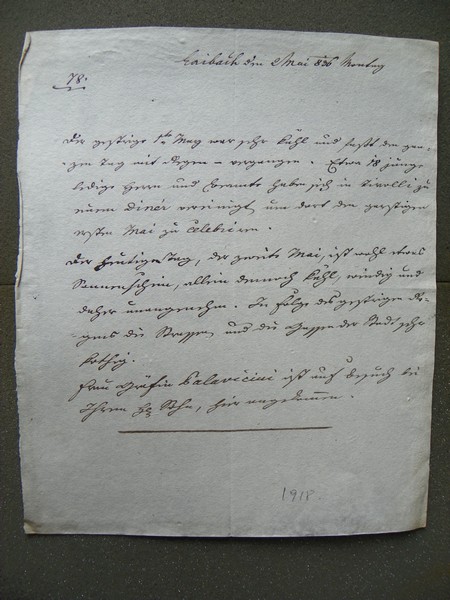 Laibach den 2 Mai 836 Montag
78.
Der gestrige 1te May war sehr kühl und fast den gan-
zen Tag mit Regen - vergangen. Etwa 18 junge
ledige Herrn und Beamte habe sich in Tivolli zu
einem Dinér vereinigt, um dort den garstigen
ersten Mai zu celebriren.
Der heutige Tag, der zweite Mai, ist wohl etwas
Sonnenschein, allein dennoch kühl, windig und
daher unangenehm. In Folge des gestrigen Re-
gens die Strassen und die Gassen der Stadt sehr
kothig.
Frau Gräfin Palavicini ist auf besuch bei
Ihren H Sohn, hier angekommen.
1918